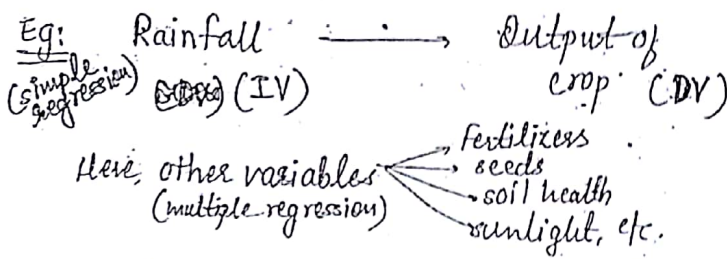 Eg: Rainfall → Output of
(simple regression) (IV) crop (DV)
Here, other variables
(multiple regression)
Fertilizers
seeds
soil health
sunlight, etc.